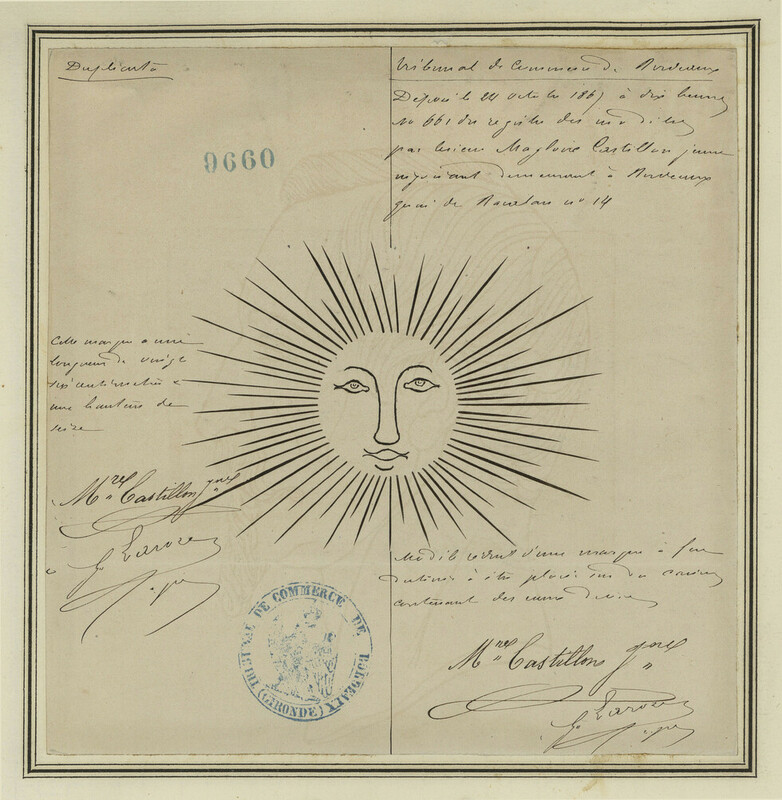 Duplicata
Tribunal de Commerce de Bordeaux
Déposé le 24 octobre 1867 à dix heures
No 661 du registre des modèles
par le sieur Magloire Castillon jeune
négociant demeurant à Bordeaux
quai de Bacalan no 14
9660
Cette marque a une
longueur de vingt
six centimètres &
une hauteur de
seize
Mre Castillon jne
Modèle réduit d'une marque à feu
destinée à être placée sur des caisses
contenant des vins divers
Mre Castillon jne
TRIBUNAL DE COMMERCE DE BORDEAUX
(GIRONDE)